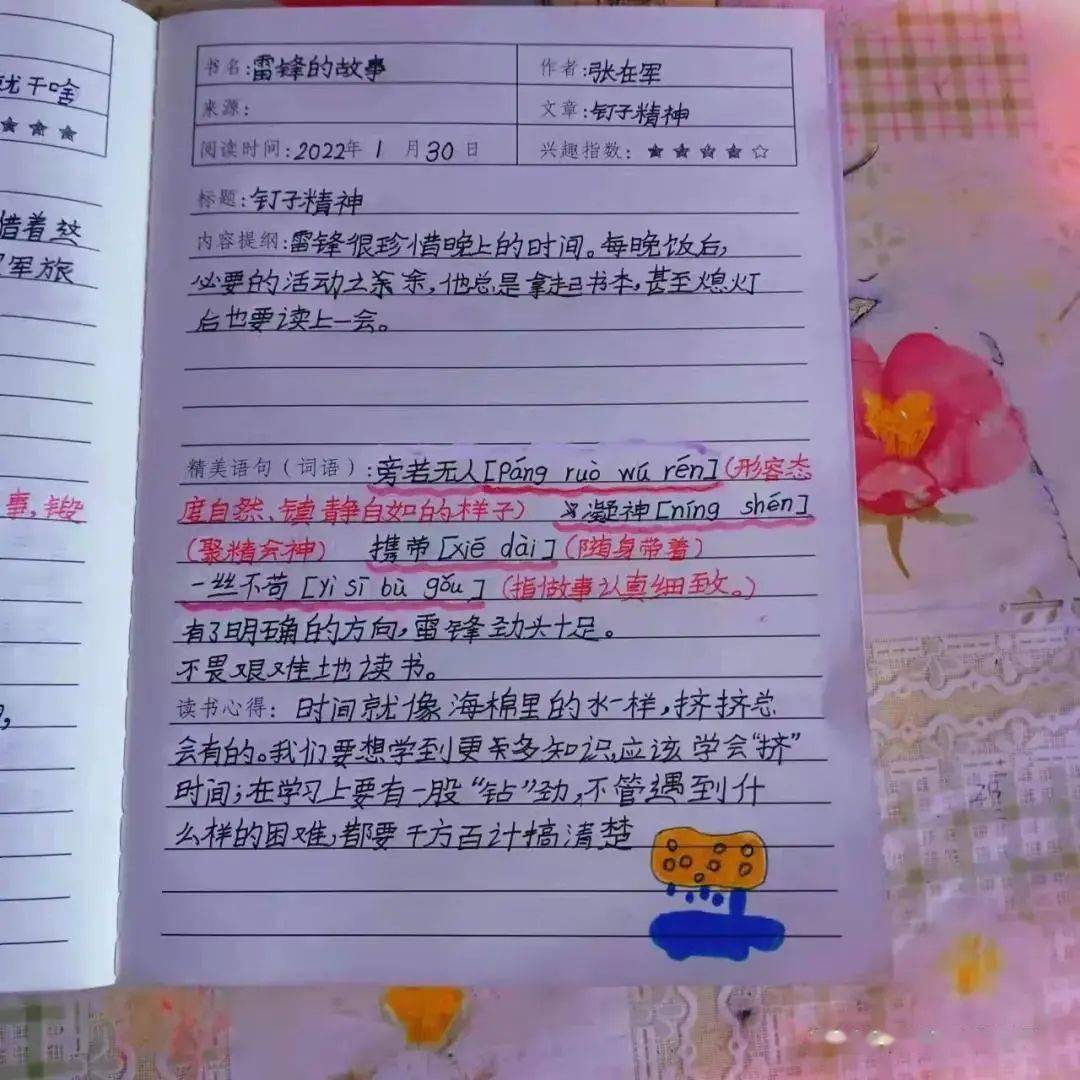 就干啥
★★★
惜着
军旅
事,锻
书名:雷锋的故事 作者:张在军
来源: 文章:钉子精神
阅读时间:2022年1月30日 兴趣指数:★★★★☆
标题:钉子精神
内容提纲:雷锋很珍惜晚上的时间。每晚饭后,
必要的活动之余,他总是拿起书本,甚至熄灯
后也要读上一会。
精美语句(词语):旁若无人[páng ruò wú rén](形容态
度自然、镇静自如的样子) 凝神[níng shén]
(聚精会神) 携带[xiē dài](随身带着)
一丝不苟[yì sī bù gǒu](指做事认真细致。)
有了明确的方向,雷锋劲头十足。
不畏艰难地读书。
读书心得:时间就像海棉里的水一样,挤挤总
会有的。我们要想学到更多知识,应该学会“挤”
时间;在学习上要有一股“钻”劲,不管遇到什
么样的困难,都要千方百计搞清楚